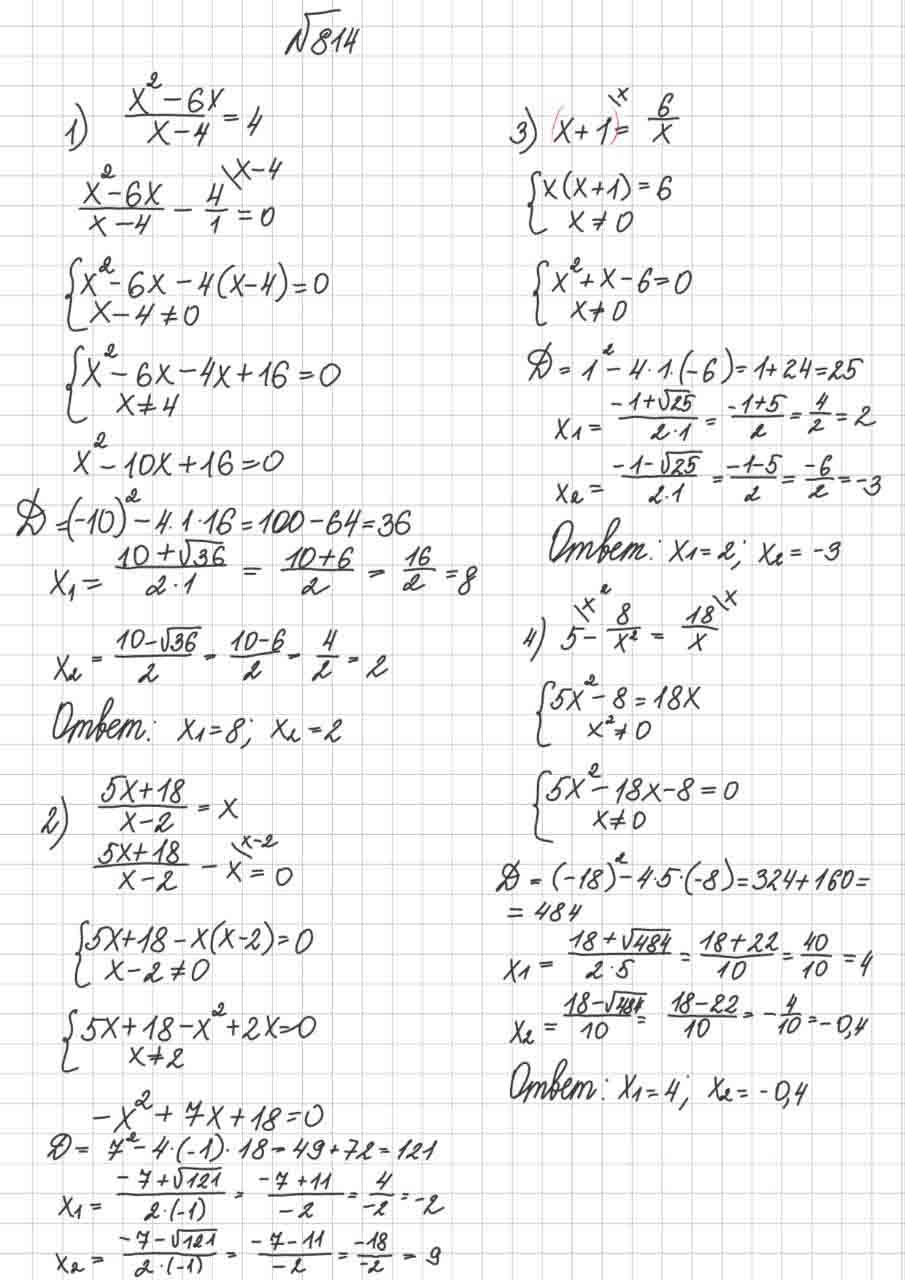 √814
1) (x² - 6x)/(x - 4) = 4
(x² - 6x)/(x - 4) - 4/1 \x-4 = 0
{ x² - 6x - 4(x - 4) = 0
x - 4 ≠ 0
{ x² - 6x - 4x + 16 = 0
x ≠ 4
x² - 10x + 16 = 0
D = (-10)² - 4·1·16 = 100 - 64 = 36
x₁ = (10 + √36)/(2·1) = (10 + 6)/2 = 16/2 = 8
x₂ = (10 - √36)/2 = (10 - 6)/2 = 4/2 = 2
Ответ: x₁ = 8; x₂ = 2
2) (5x + 18)/(x - 2) = x
(5x + 18)/(x - 2) - x \x-2 = 0
{ 5x + 18 - x(x - 2) = 0
x - 2 ≠ 0
{ 5x + 18 - x² + 2x = 0
x ≠ 2
-x² + 7x + 18 = 0
D = 7² - 4·(-1)·18 = 49 + 72 = 121
x₁ = (-7 + √121)/(2·(-1)) = (-7 + 11)/(-2) = 4/(-2) = -2
x₂ = (-7 - √121)/(2·(-1)) = (-7 - 11)/(-2) = (-18)/(-2) = 9
3) (x + 1) \x = 6/x
{ x(x + 1) = 6
x ≠ 0
{ x² + x - 6 = 0
x ≠ 0
D = 1² - 4·1·(-6) = 1 + 24 = 25
x₁ = (-1 + √25)/(2·1) = (-1 + 5)/2 = 4/2 = 2
x₂ = (-1 - √25)/(2·1) = (-1 - 5)/2 = -6/2 = -3
Ответ: x₁ = 2; x₂ = -3
4) 5 \x² - 8/x² = 18/x \x
{ 5x² - 8 = 18x
x² ≠ 0
{ 5x² - 18x - 8 = 0
x ≠ 0
D = (-18)² - 4·5·(-8) = 324 + 160 =
= 484
x₁ = (18 + √484)/(2·5) = (18 + 22)/10 = 40/10 = 4
x₂ = (18 - √484)/10 = (18 - 22)/10 = -4/10 = -0,4
Ответ: x₁ = 4; x₂ = -0,4